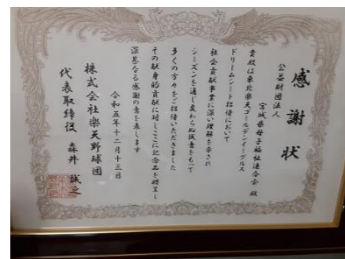 感謝状
公益財団法人
宮城県母子福祉連合会 殿
貴殿は東北楽天ゴールデンイーグルス
ドリームシート招待において
社会貢献事業に深い理解を示され
シーズンを通し変わらぬ誠意をもって
多くの方々をご招待いただきました
その献身的貢献に対しここに記念品を贈呈し
深甚なる感謝の意を表します
令和五年十二月十三日
株式会社楽天野球団
代表取締役 森井 誠之